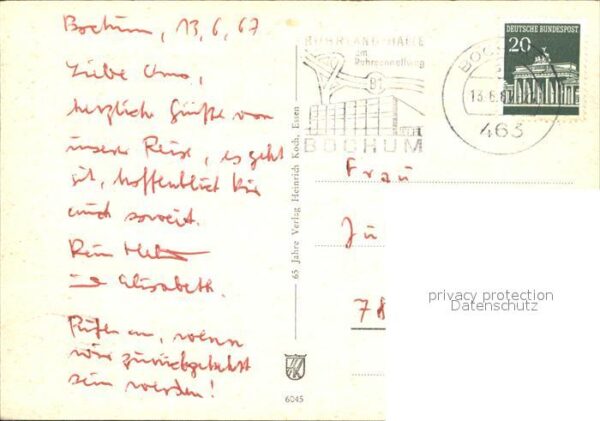 Bochum, 13.6.67
Liebe Omo,
herzliche Grüße von
unserer Reise, es geht
gut, hoffentlich Dir
auch soweit.
Dein
und Elisabeth.
Rufen an, wenn
wir zurückgekehrt
sein werden!
65 Jahre Verlag Heinrich Koch, Essen
6045
RUHRLANDHALLE
am
Ruhrschnellweg
B1
BOCHUM
BOCHUM
13.6.67
463
DEUTSCHE BUNDESPOST
20
Frau
Ju
78
privacy protection
Datenschutz